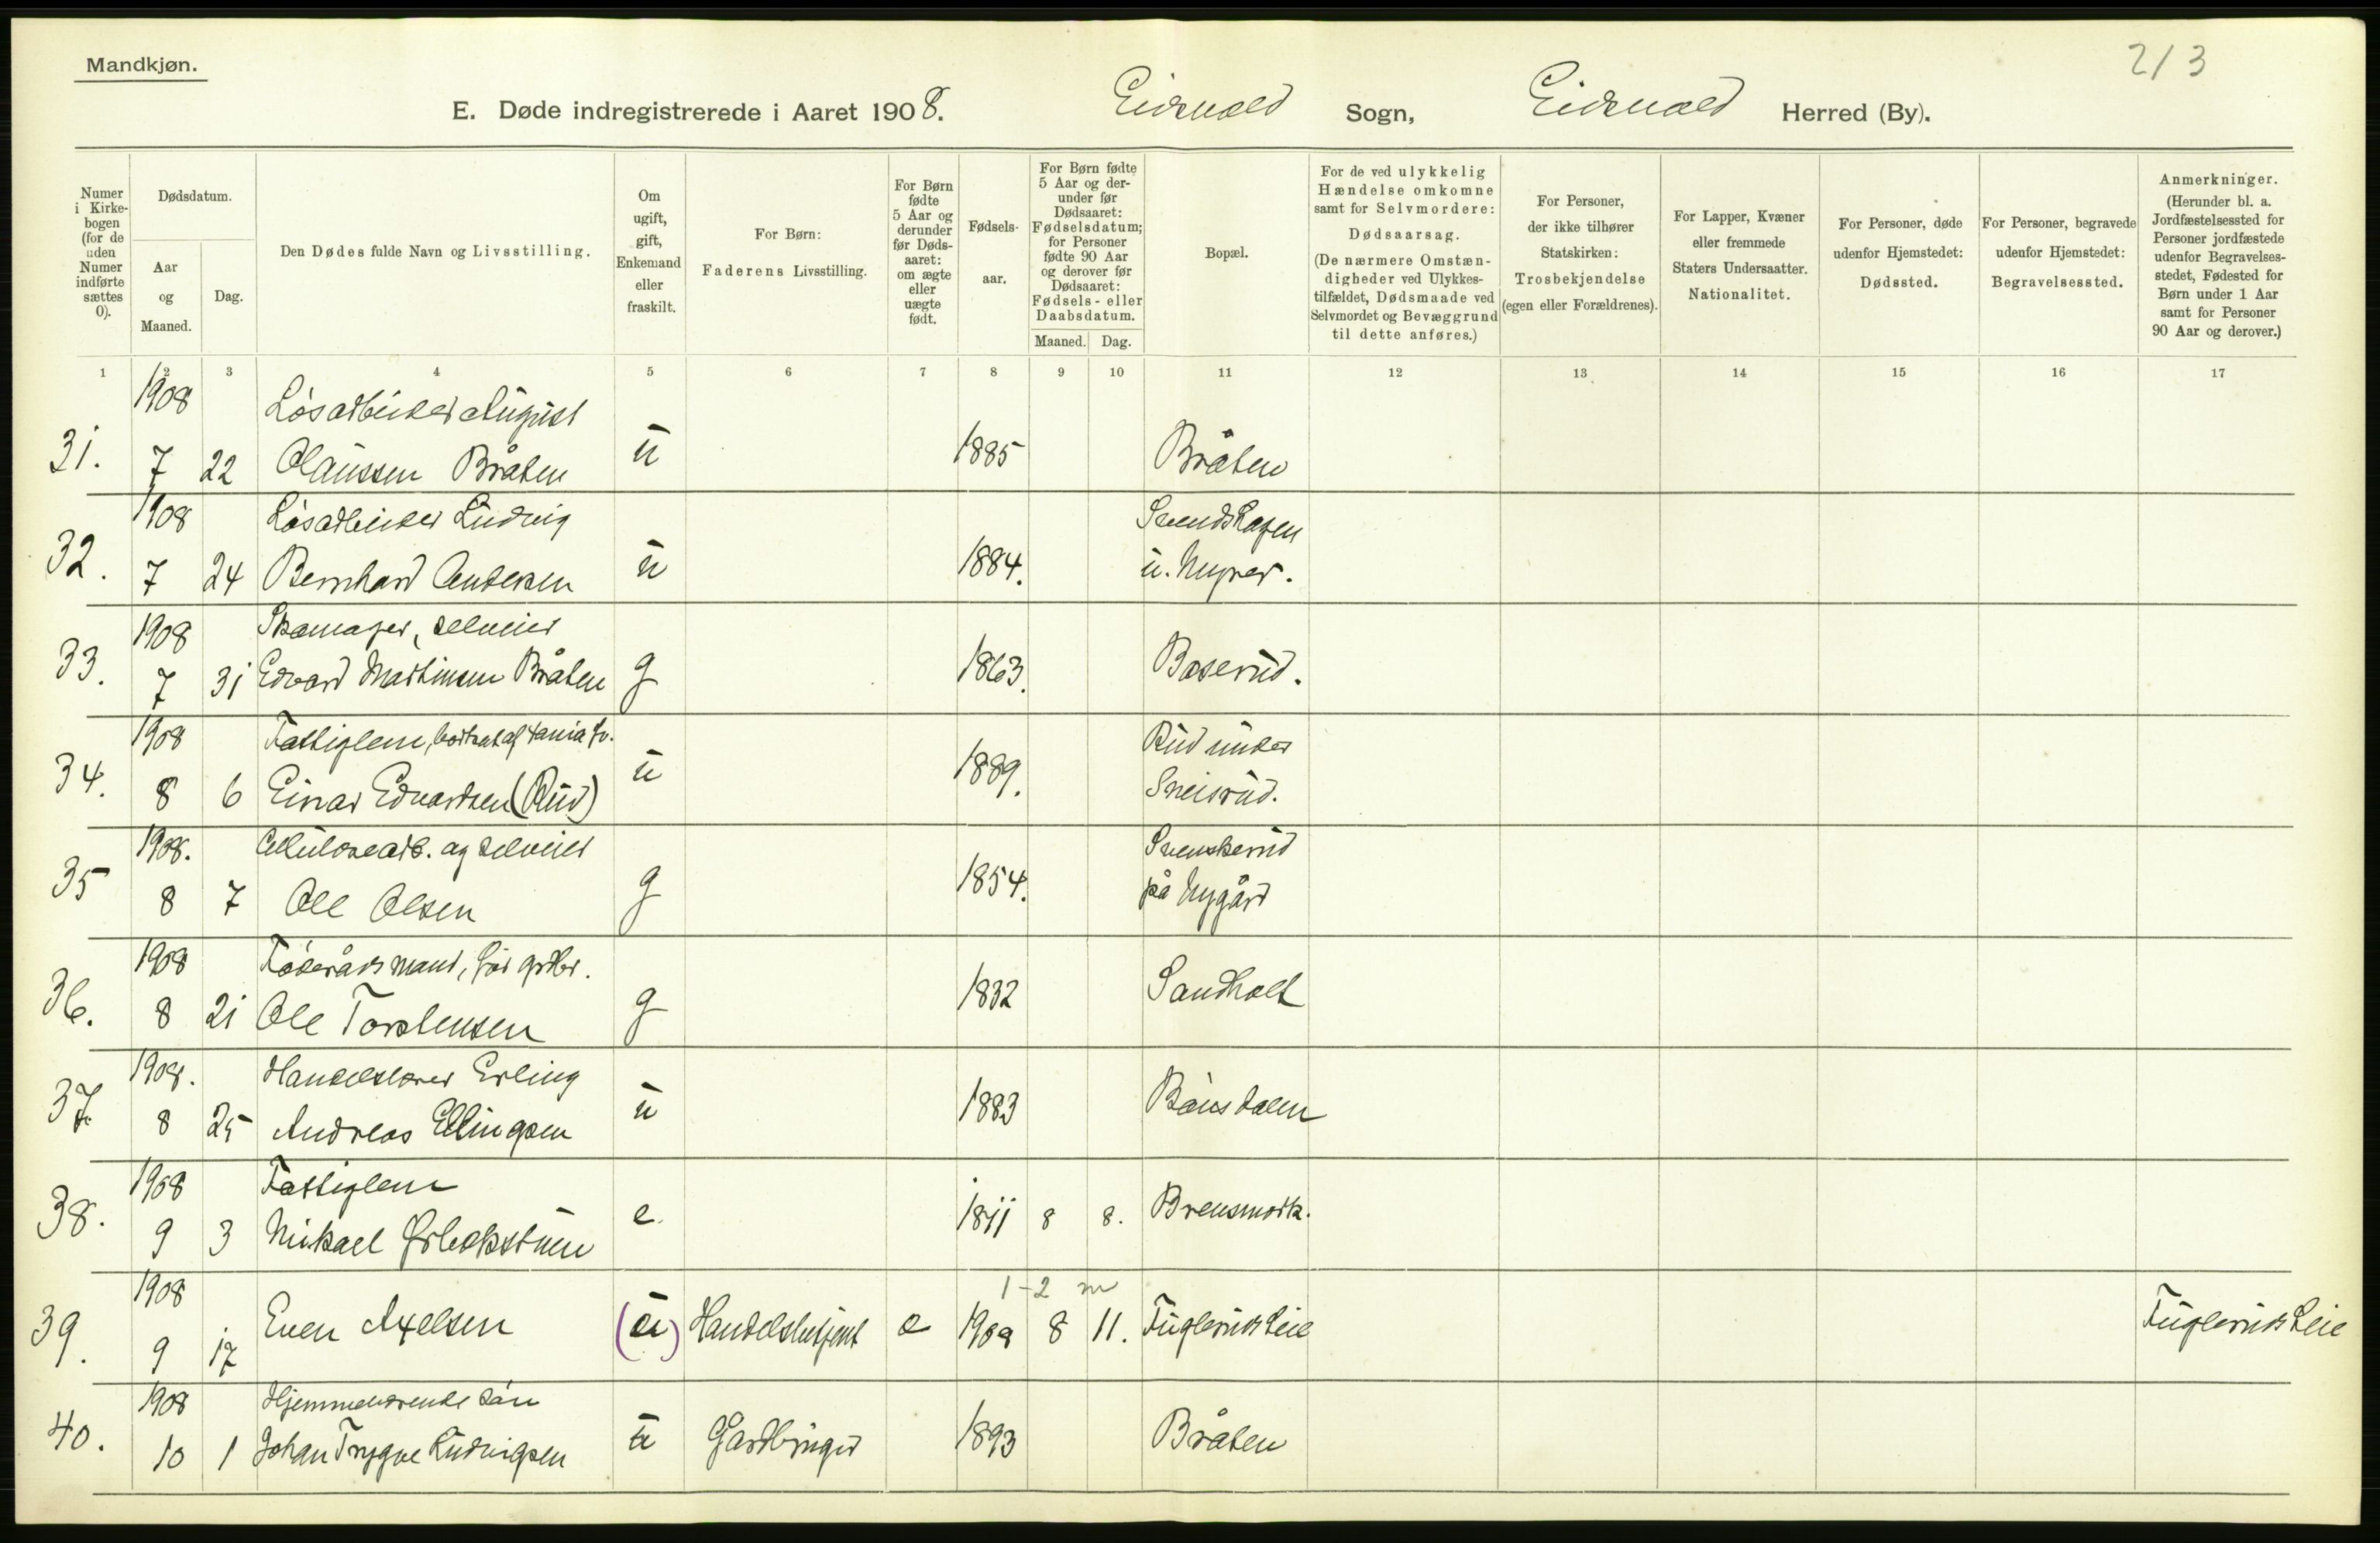 Mandkjøn.
213
E. Døde indregistrerede i Aaret 1908. Eidsvold Sogn, Eidsvold Herred (By).
Numer i Kirkebogen (for de uden Numer indførte sættes 0).
Dødsdatum.
Aar og Maaned.
Dag.
Den Dødes fulde Navn og Livsstilling.
Om ugift, gift, Enkemand eller fraskilt.
For Børn: Faderens Livsstilling.
For Børn fødte 5 Aar og derunder før Dødsaaret: om ægte eller uægte født.
Fødselsaar.
For Børn fødte 5 Aar og derunder før Dødsaaret: Fødselsdatum; for Personer fødte 90 Aar og derover før Dødsaaret: Fødsels- eller Daabsdatum.
Maaned. Dag.
Bopæl.
For de ved ulykkelig Hændelse omkomne samt for Selvmordere: Dødsaarsag. (De nærmere Omstændigheder ved Ulykkestilfældet, Dødsmaade ved Selvmordet og Bevæggrund til dette anføres.)
For Personer, der ikke tilhører Statskirken: Trosbekjendelse (egen eller Forældrenes).
For Lapper, Kvæner eller fremmede Staters Undersaatter. Nationalitet.
For Personer, døde udenfor Hjemstedet: Dødssted.
For Personer, begravede udenfor Hjemstedet: Begravelsessted.
Anmerkninger. (Herunder bl. a. Jordfæstelsessted for Personer jordfæstede udenfor Begravelsesstedet, Fødested for Børn under 1 Aar samt for Personer 90 Aar og derover.)
1 2 3 4 5 6 7 8 9 10 11 12 13 14 15 16 17
1908 Løsarbeider August
31. 7 22 Olaussen Bråten u 1885 Bråten
1908 Løsarbeider Ludvig Svendshagen
32. 7 24 Bernhard Andersen u 1884. u. Myrer.
1908 Skomager, selveier
33. 7 31 Edvard Martinsen Bråten g 1863. Bøserud.
1908 Fattiglem, bortsat af Rud under
34. 8 6 Einar Edvardsen (Rud) u 1889. Sneisrud.
1908. Cellulosearb. og selveier Svenskerud
35 8 7 Ole Olsen g 1854. på Nygård
1908 Føderådsmand, før grdbr.
36. 8 21 Ole Torstensen g 1832 Sandholt
1908. Handelslærer Erling
37. 8 25 Andreas Ellingsen u 1883 Bønsdalen
1908 Fattiglem
38. 9 3 Mikael Ørbekstuen e. 1811 8 8. Brensmork.
1908 1-2 m
39. 9 17 Even Axelsen (u) Handelsbetjent e 1908 8 11. Fuglerudsleie Fuglerudsleie
1908 Hjemmeværende søn
40. 10 1 Johan Trygve Ludvigsen u Gårdbruger 1893 Bråten